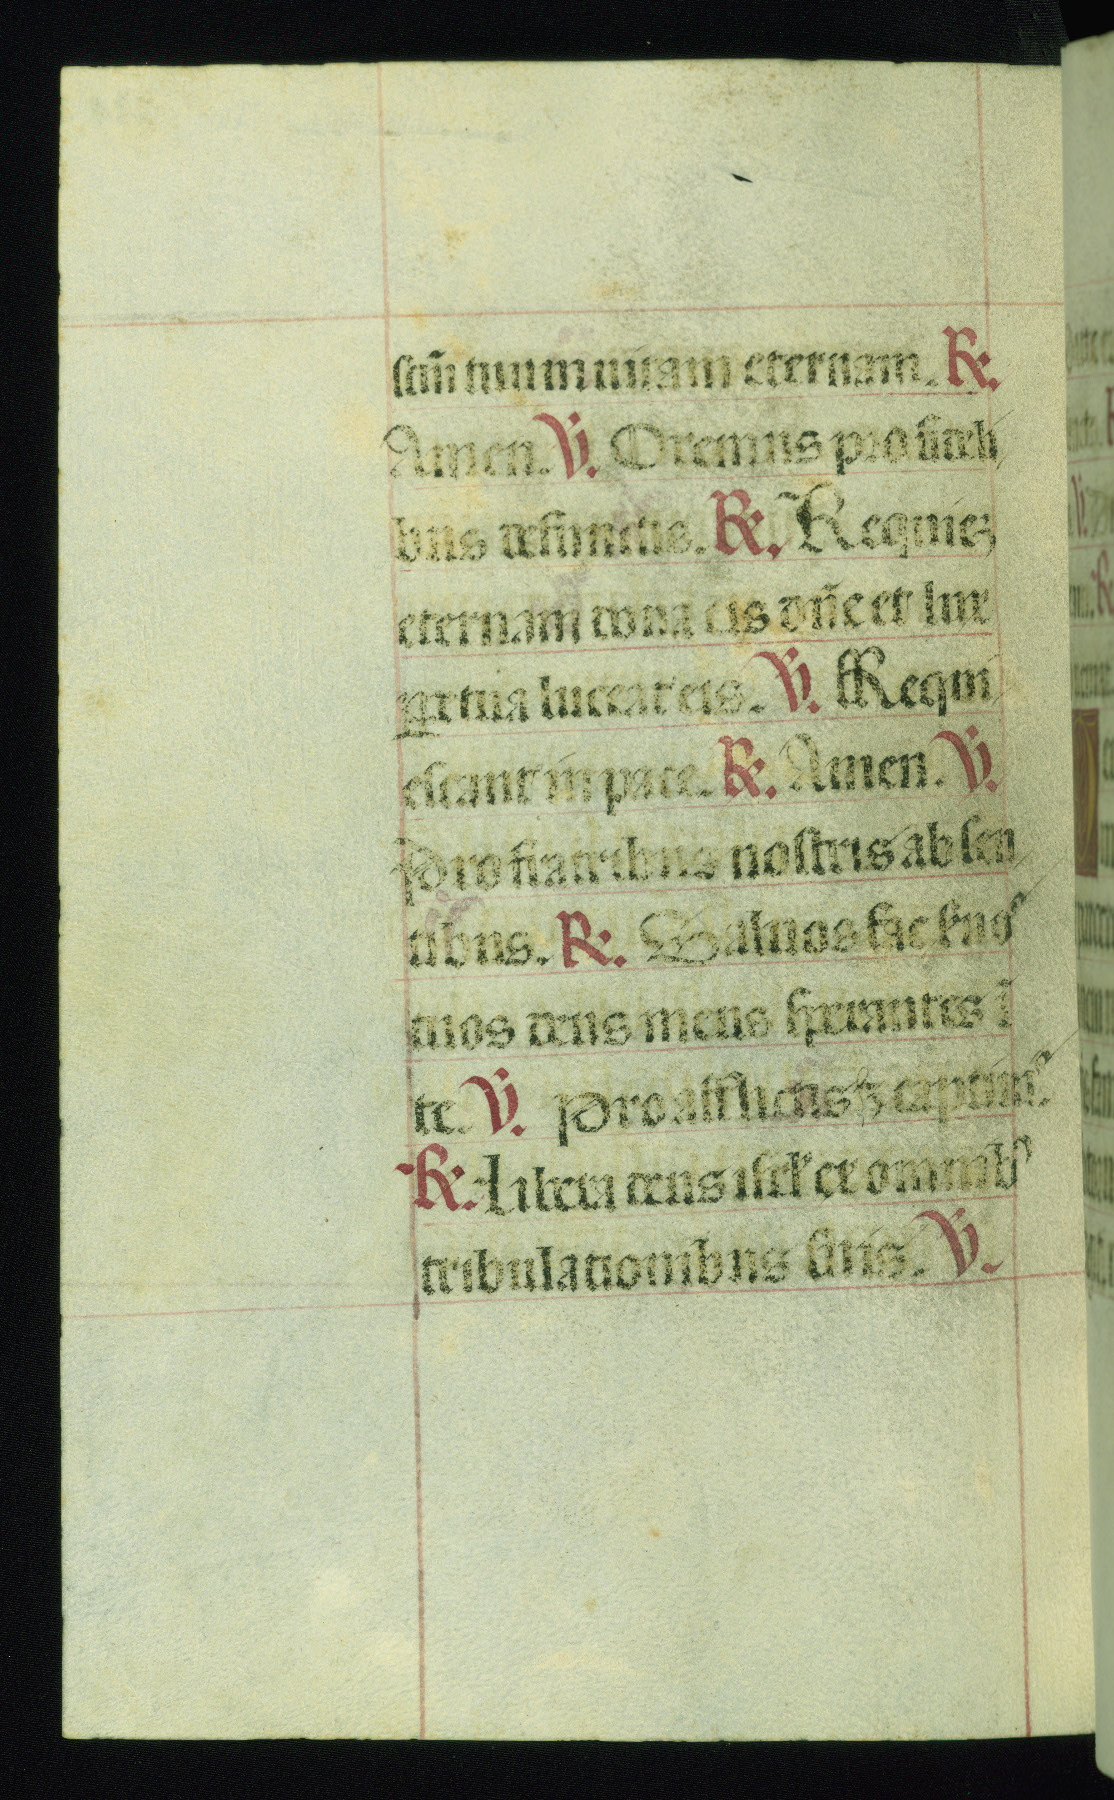 ctū tuum uitam eternam. ℟.
Amen. ℣. Oremus pro fideli
bus defunctis. ℟. Requiez
eternam dona eis dn̄e et lux
perpetua luceat eis. ℣. Requi
escant in pace. ℟. Amen. ℣.
Pro fratribus nostris absen
tibus. ℟. Saluos fac seruos
tuos deus meus sperantes ī
te. ℣. Pro afflictis et captiuis.
℟. Libera deus isrl' ex omnibꝰ
tribulationibus suis. ℣.